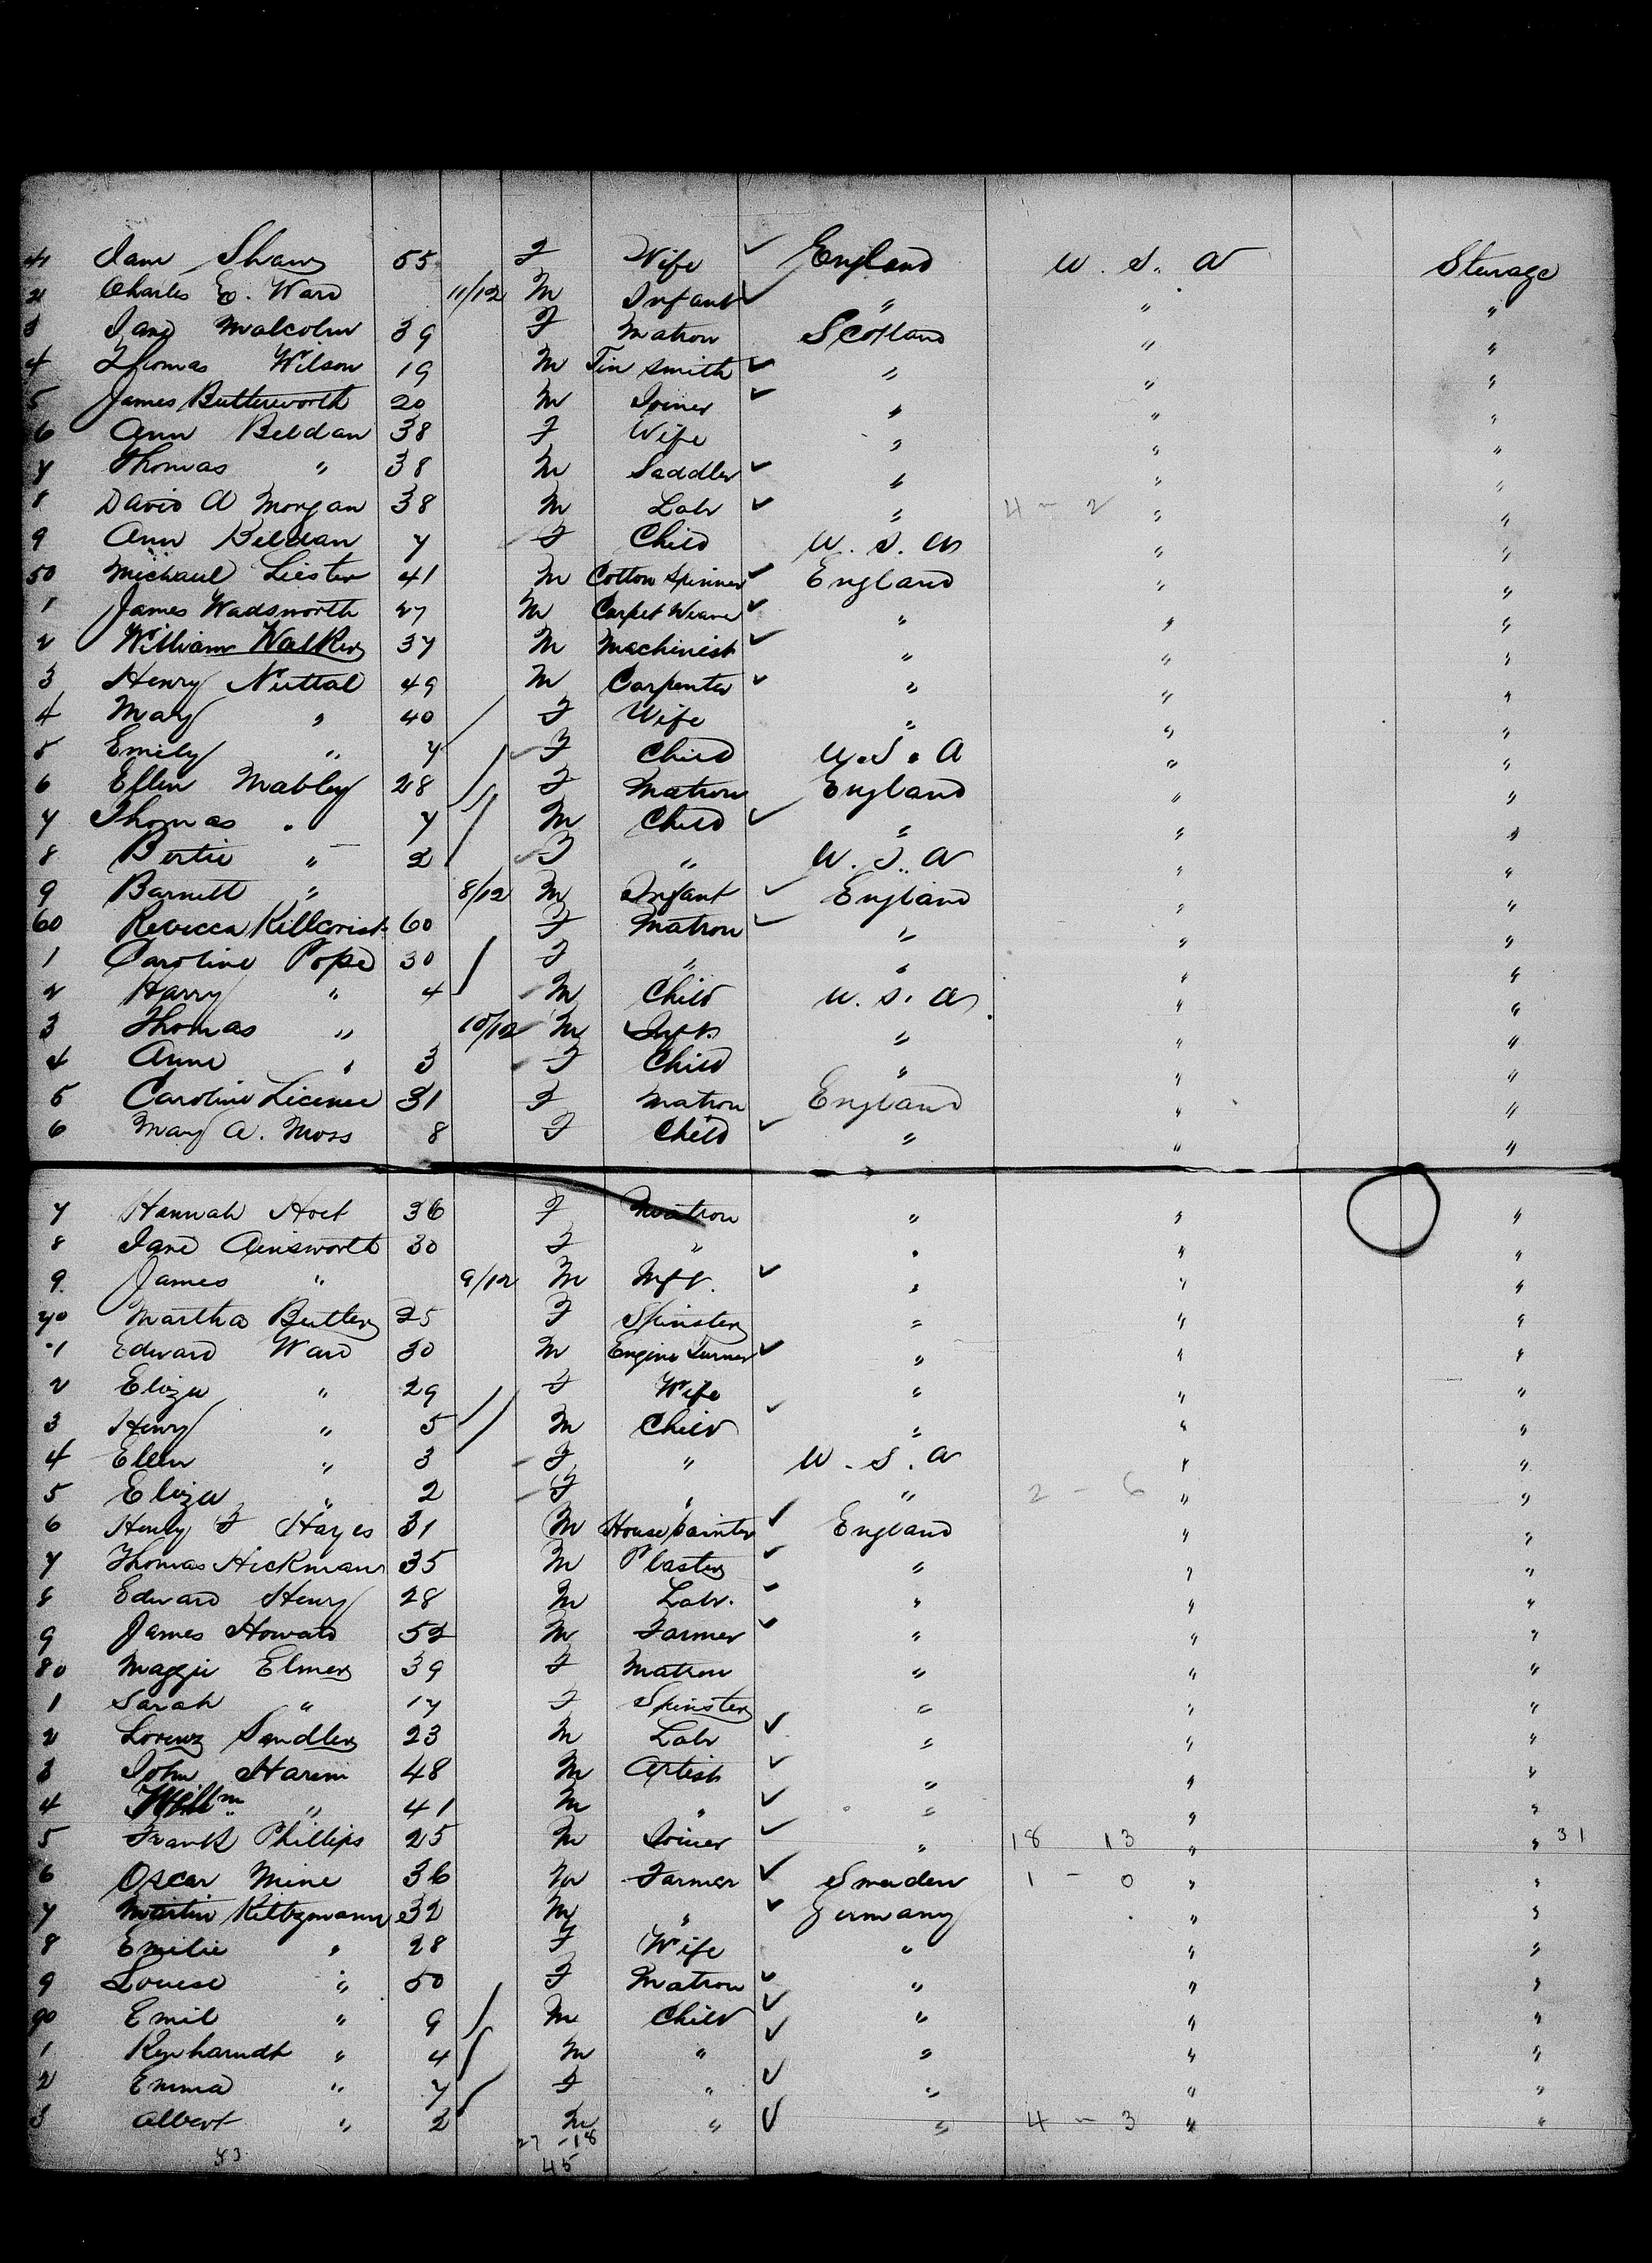 41 Jane Shaw 55 F Wife ✓ England U. S. A Sturage
2 Charles E. Ward 11/12 M Infant ✓ " " "
3 Jane Malcolm 39 F Matron Scotland " "
4 Thomas Wilson 19 M Tin Smith ✓ " " "
5 James Butterworth 20 M Joiner ✓ " " "
6 Ann Beldan 38 F Wife " " "
7 Thomas " 38 M Saddler ✓ " " "
8 David A Morgan 38 M Labr ✓ " 4 - 2 " "
9 Ann Beldan 7 F Child U. S. A " "
50 Michael Liester 41 M Cotton Spinner ✓ England " "
1 James Wadsworth 27 M Carpet Weaver ✓ " " "
2 William Walker 37 M Machinist ✓ " " "
3 Henry Nuttal 49 M Carpenter ✓ " " "
4 Mary " 40 F Wife " " "
5 Emily " 7 F Child U. S. A " "
6 Ellen Mabley 28 F Matron England " "
7 Thomas " 7 M Child ✓ " " "
8 Bertie " 2 F " U. S. A " "
9 Barnett " 8/12 M Infant ✓ England " "
60 Rebecca Killcrist 60 F Matron ✓ " " "
1 Caroline Pope 30 F " " " "
2 Harry " 4 M Child U. S. A " "
3 Thomas " 10/12 M Inft. " " "
4 Anne " 3 F Child " " "
5 Caroline Licence 31 F Matron England " "
6 Mary A. Moss 8 F Child ✓ " " "
7 Hannah Hoet 36 F Matron " " "
8 Jane Ainsworth 30 F " " " "
9 James " 9/12 M Inft. ✓ " " "
70 Martha Butler 25 F Spinster " " "
1 Edward Ward 30 M Engine Turner ✓ " " "
2 Eliza " 29 F Wife " " "
3 Henry " 5 M Child ✓ " " "
4 Ellen " 3 F " U. S. A " "
5 Eliza " 2 F " " 2 - 6 " "
6 Henry F Hayes 31 M House painter ✓ England " "
7 Thomas Hickman 35 M Plaster ✓ " " "
8 Edward Henry 28 M Labr. ✓ " " "
9 James Howard 52 M Farmer ✓ " " "
80 Maggie Elmer 39 F Matron " " "
1 Sarah " 17 F Spinster " " "
2 Lorenz Sendler 23 M Labr ✓ " " "
3 John Harim 48 M Artist ✓ " " "
4 Willm " 41 M " ✓ " " "
5 Frank Phillips 25 M Joiner ✓ " 18 - 13 " " 31
6 Oscar Mine 36 M Farmer ✓ Sweden 1 - 0 " "
7 Martin Kitzmann 32 M " ✓ Germany " "
8 Emilie " 28 F Wife " " "
9 Louise " 50 F Matron ✓ " " "
90 Emil " 9 M Child ✓ " " "
1 Reyharndt " 4 M " ✓ " " "
2 Emma " 7 F " ✓ " " "
3 Albert " 2 M " ✓ " 4 - 3 " "
27 - 18
45